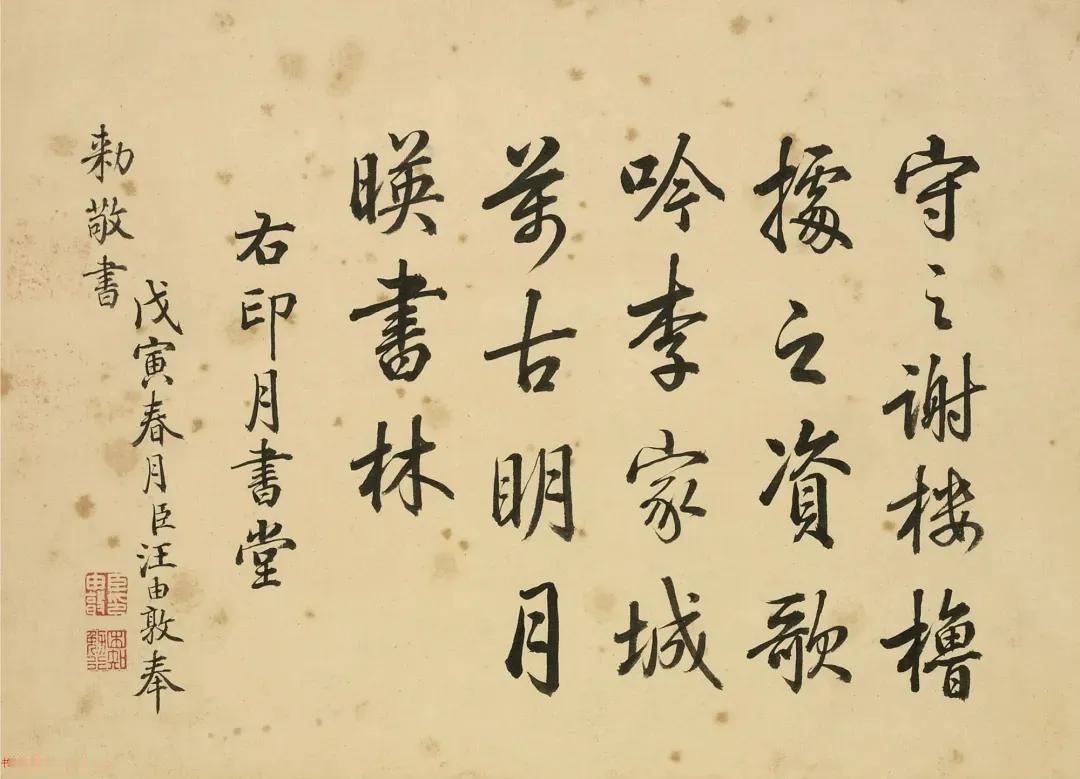 守之謝楼櫓
據之資歌
吟李家城
萬古明月
暎書林
右印月書堂
戊寅春月臣汪由敦奉
勅敬書